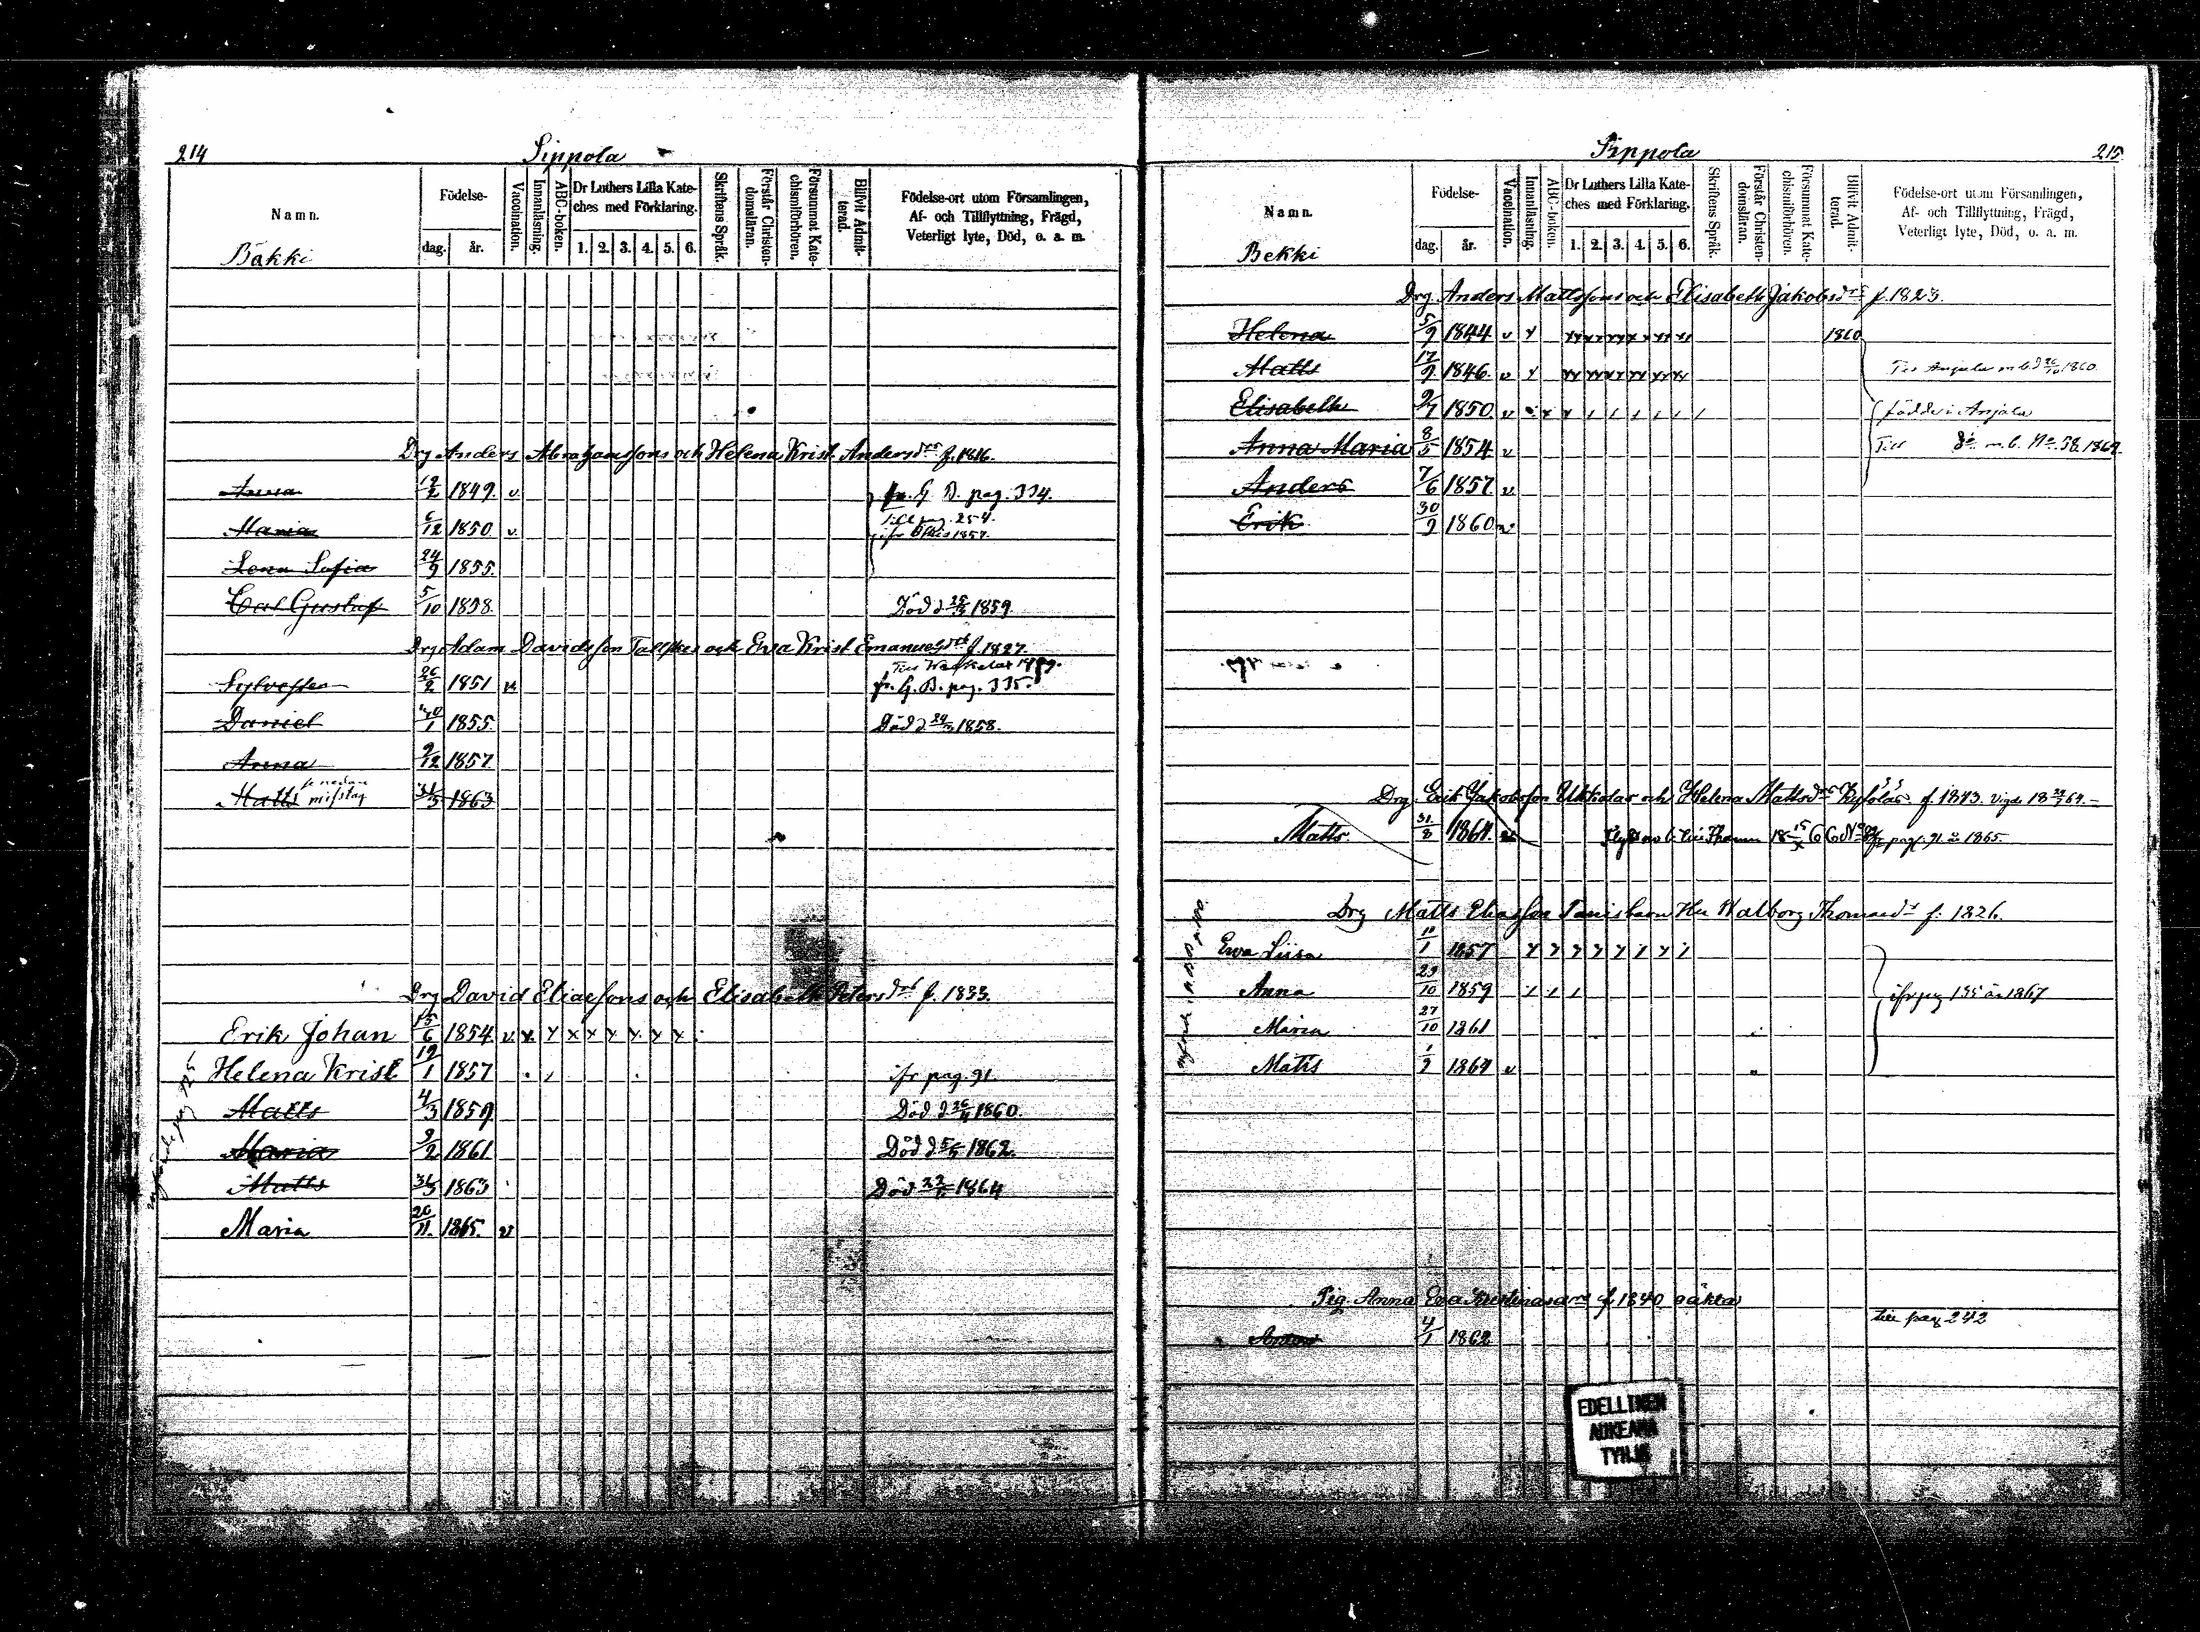 214
Sippola
Namn.
Födelse-
dag.
år.
Vaccination.
Innanläsning.
ABC-boken.
Dr Luthers Lilla Kate-
ches med Förklaring.
1. 2. 3. 4. 5. 6.
Skriftens Språk.
Förstår Christen-
domsläran.
Försummat Kate-
chismiförhören.
Blifvit Admit-
terad.
Födelse-ort utom Församlingen,
Af- och Tillflyttning, Frägd,
Veterligt lyte, Död, o. a. m.
Bäkki
Drg Anders Abrahamssons och Helena Krist. Andersdrs f. 1816.
Anna 12/2 1849. v. fr. G. B. pag. 334.
Till pag. 254.
Maria 6/12 1850. v.
Lena Sofia 24/9 1855.
Carl Gustaf 5/10 1858. Död d 25/3 1859.
Drg Adam Davidsson och Eva Krist Emanuelsdrs f. 1827.
Sylvester 26/2 1851 v. fr. G. B. pag. 335.
Daniel 1855. Död d 1858.
Anna 9/12 1857
Matts se nedan misstag 31/3 1863
Drg David Eliassons och Elisabeth Petersdrs f. 1833.
Erik Johan 15/6 1854 v. x. x x x x x x x
Helena Krist 19/1 1857 ifr pag. 91.
Matts 4/3 1859 Död d 1860.
Maria 9/2 1861 Död d 1862.
Matts 31/3 1863 Död 1864
Maria 20/11. 1865. v
215
Sippola
Namn.
Födelse-
dag.
år.
Vaccination.
Innanläsning.
ABC-boken.
Dr Luthers Lilla Kate-
ches med Förklaring.
1. 2. 3. 4. 5. 6.
Skriftens Språk.
Förstår Christen-
domsläran.
Försummat Kate-
chismiförhören.
Blifvit Admit-
terad.
Födelse-ort utom Församlingen,
Af- och Tillflyttning, Frägd,
Veterligt lyte, Död, o. a. m.
Bekki
Drg Anders Mattssons och Elisabeth Jakobsdrs f. 1823.
Helena 5/9 1844 v x 1860
Matts 17/9 1846. v x Till Anjala m. b. d 1860.
Elisabeth 9/7 1850. v födde i Anjala
Anna Maria 8/5 1854 v Till do m. b. No 58 1862.
Anders 7/6 1857 v
Erik 30/9 1860
Drg. Erik Jakobsson Ukkolas och Helena Mattsdrs f. 1843.
Matts 31/8 1864. pag. 91 år 1865.
Drg Matts Eliasson Hu Walborg Thomasdr f. 1826.
Ewa Liisa 11/1 1857
Anna 29/10 1859 ifr pag 195 år 1867
Maria 27/10 1861
Matts 1/9 1864 v
Pig. Anna Eva f 1840 oäkta
till pag 242
4/1 1862
EDELLINEN
AUKEAMA
TYHJÄ